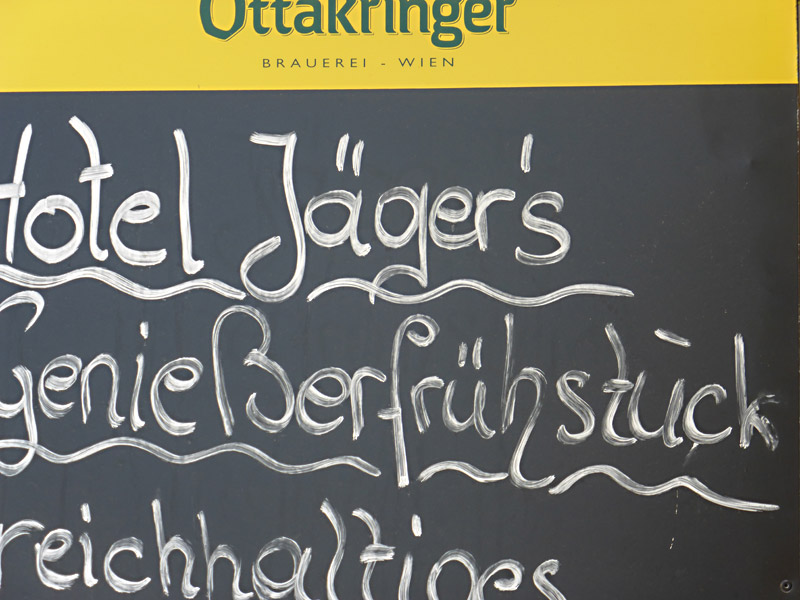 Ottakringer
BRAUEREI - WIEN
Hotel Jäger's
genießerfrühstück
reichhaltiges